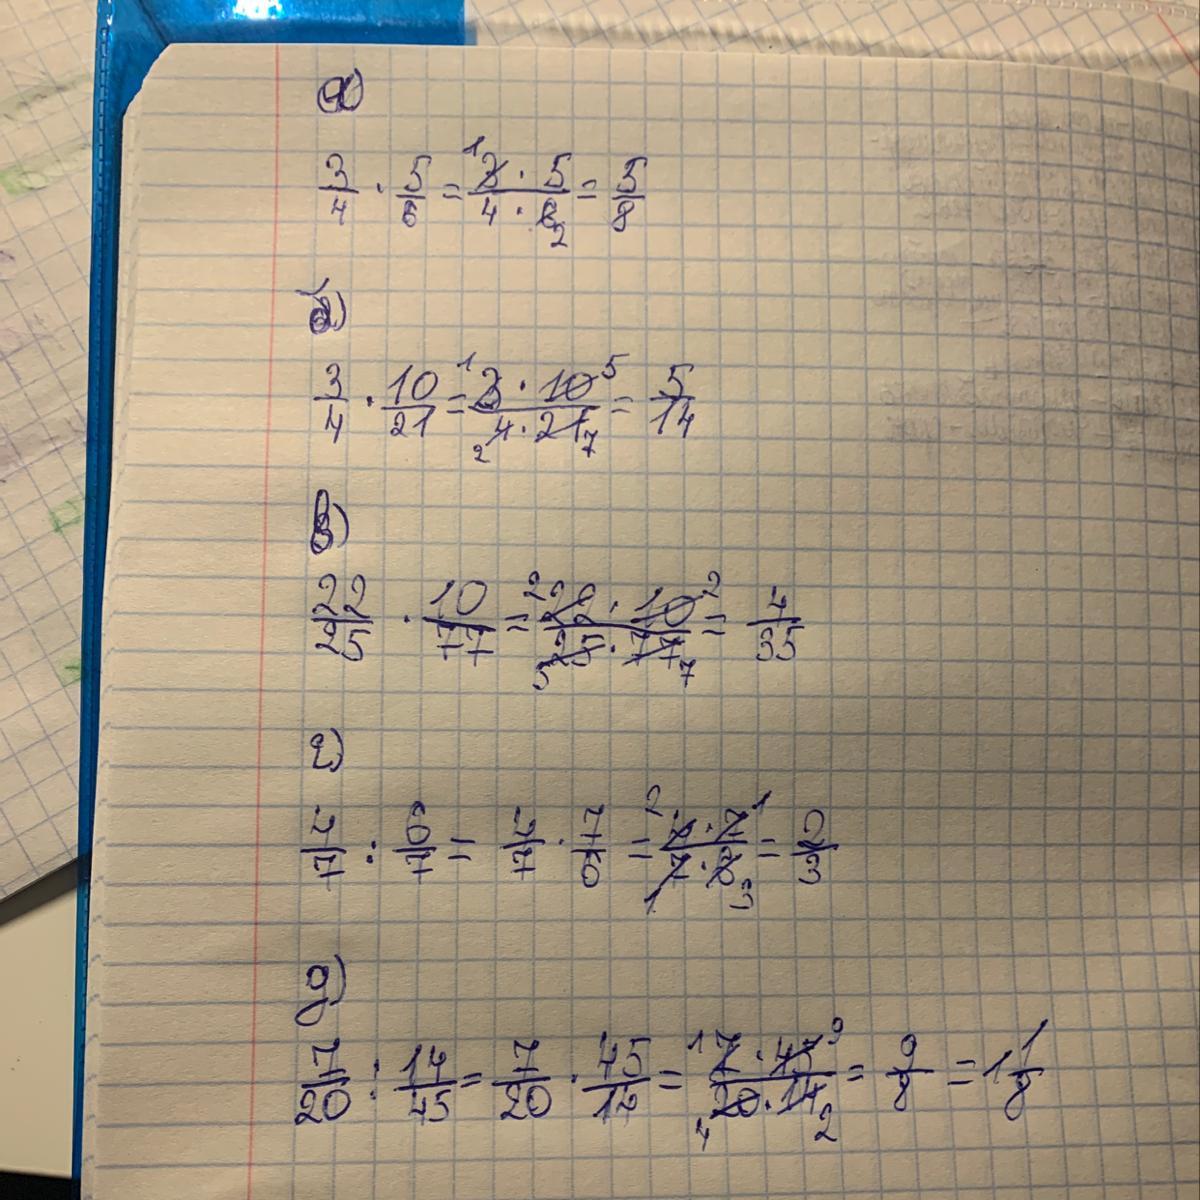 а)
3/4 · 5/6 = ¹3 · 5/4 · 6₂ = 5/8
б)
3/4 · 10/21 = ¹3 · 10⁵/₂4 · 21₇ = 5/14
в)
22/25 · 10/77 = ²22 · 10²/₅25 · 77₇ = 4/35
г)
4/7 : 6/7 = 4/7 · 7/6 = ²4 · 7¹/₁7 · 6₃ = 2/3
д)
7/20 : 14/45 = 7/20 · 45/14 = ¹7 · 45⁹/₄20 · 14₂ = 9/8 = 1 1/8